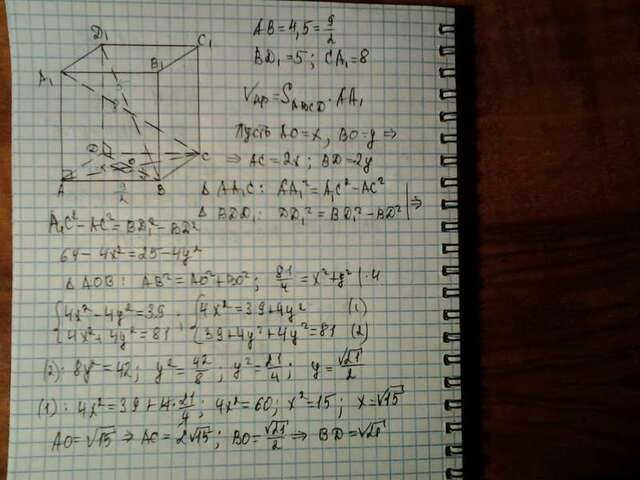 AB = 4,5 = 9/2
BD₁ = 5 ; CA₁ = 8
Vпр = S_ABCD · AA₁
Пусть AO = x, BO = y ⇒
⇒ AC = 2x ; BD = 2y
△ AA₁C : AA₁² = A₁C² − AC²
△ BDD₁ : DD₁² = BD₁² − BD² | ⇒
A₁C² − AC² = BD₁² − BD²
64 − 4x² = 25 − 4y²
△ AOB : AB² = AO² + BO² ; 81/4 = x² + y² | · 4
{ 4x² − 4y² = 39 ; { 4x² = 39 + 4y² (1)
{ 4x² + 4y² = 81 { 39 + 4y² + 4y² = 81 (2)
(2) : 8y² = 42 ; y² = 42/8 ; y² = 21/4 ; y = √21/2
(1) : 4x² = 39 + 4 · 21/4 ; 4x² = 60 ; x² = 15 ; x = √15
AO = √15 ⇒ AC = 2√15 ; BO = √21/2 ⇒ BD = √21
D₁
C₁
A₁
B₁
D
O
C
A
9/2
B